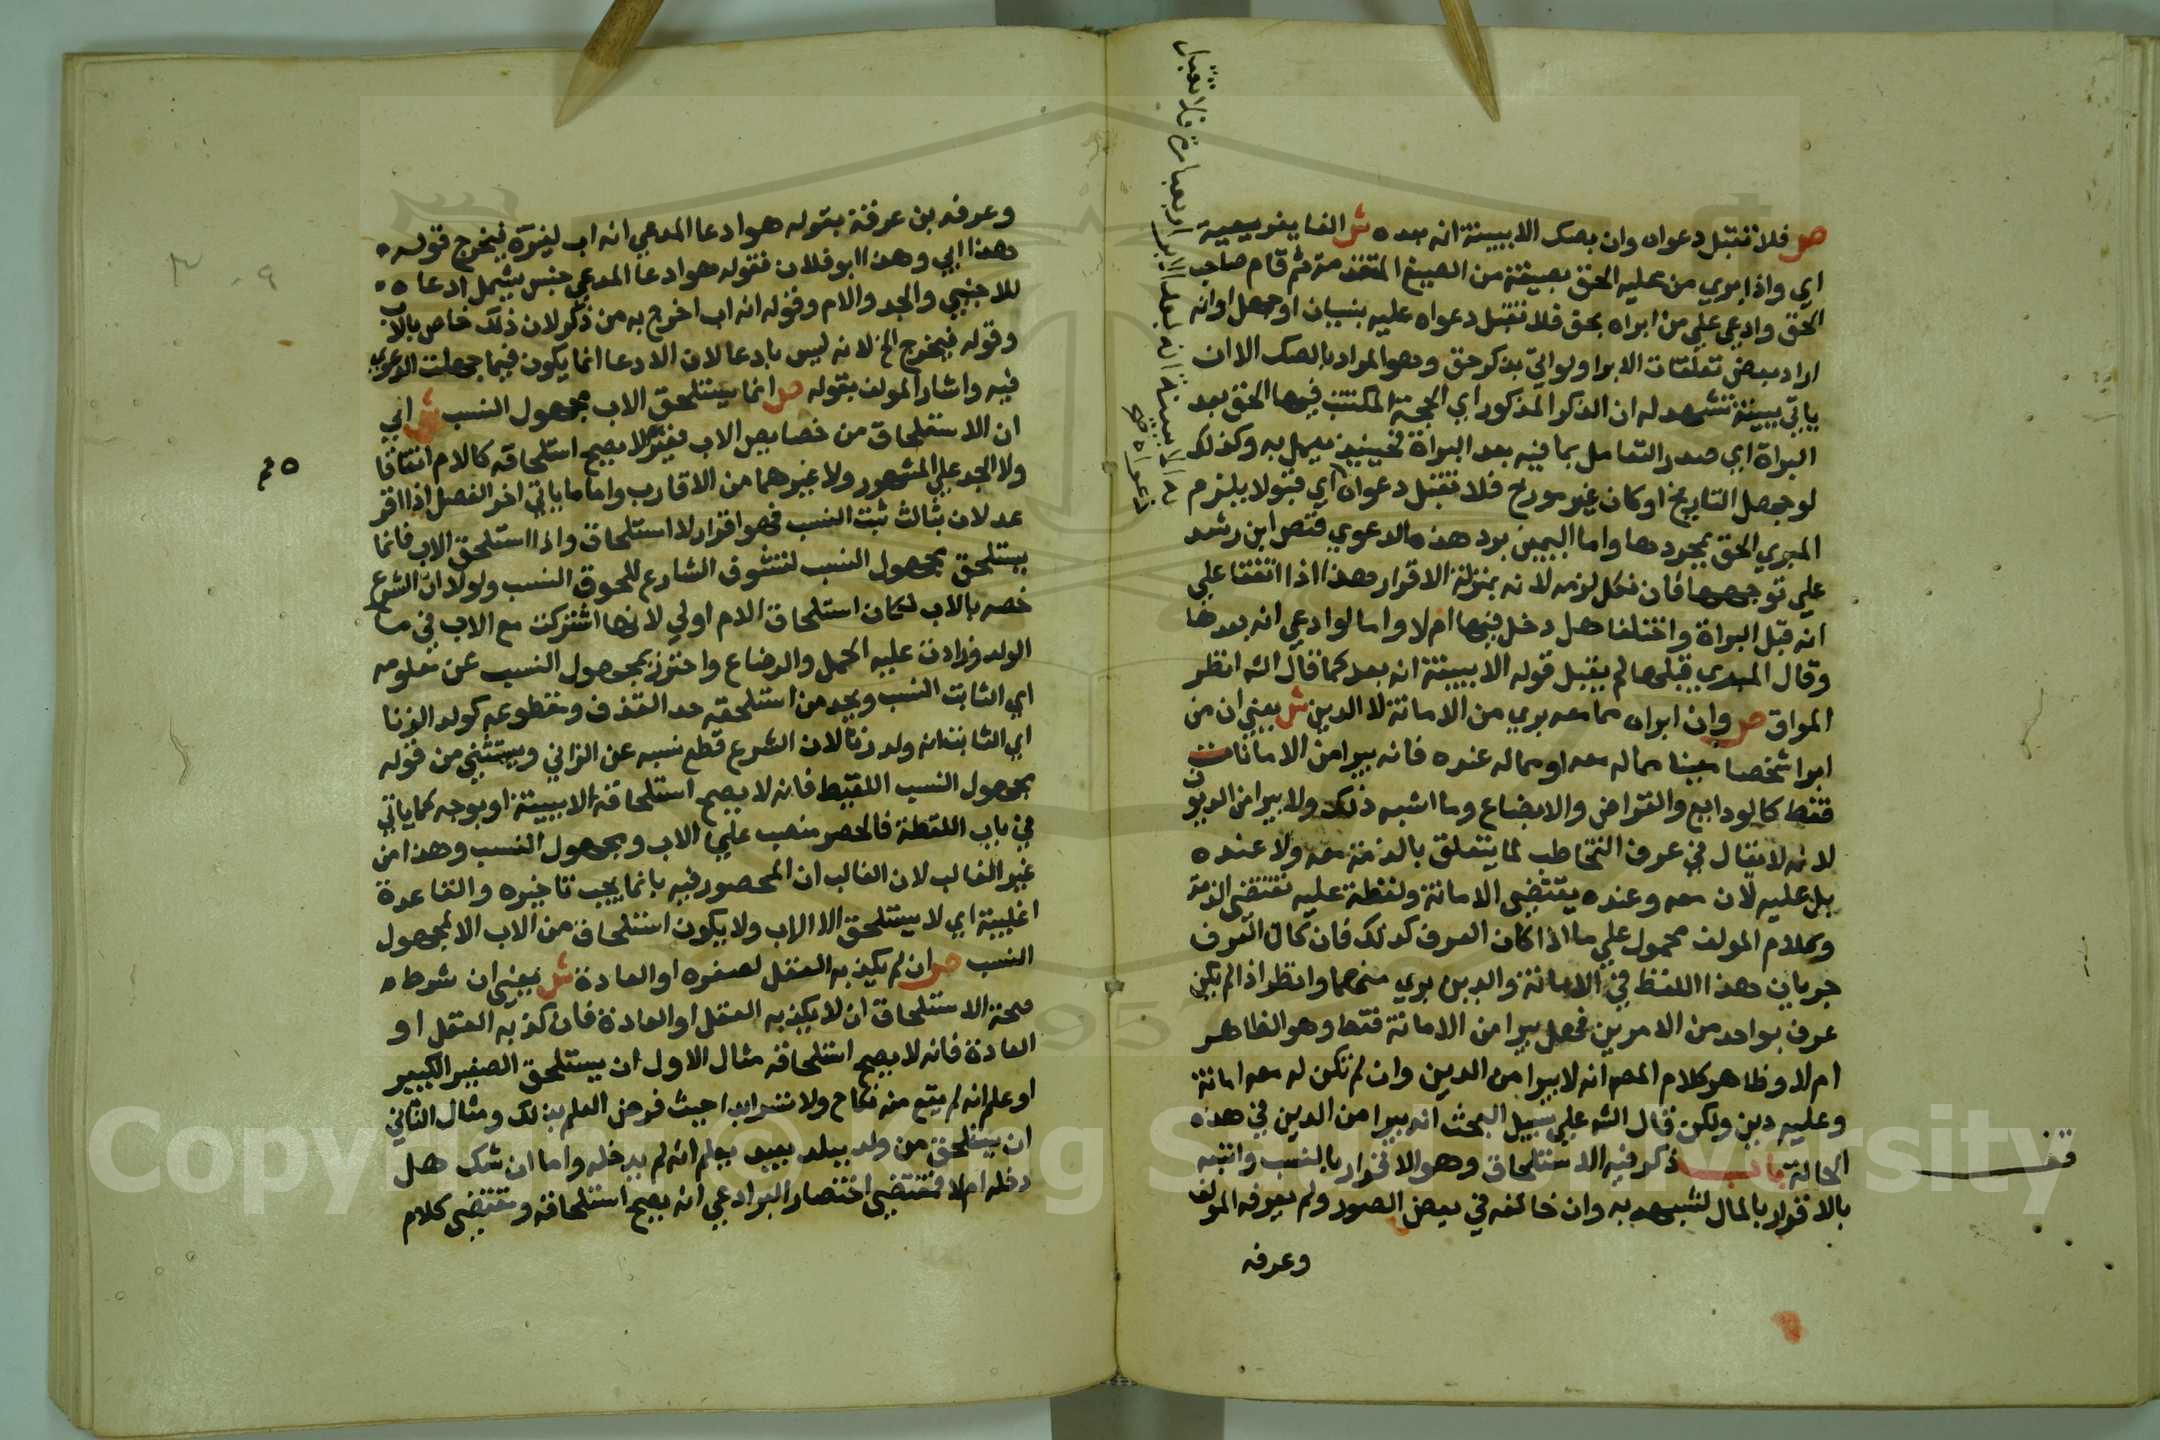 ص فلا تقبل دعواه وان بصك الا ببينة انه بعده ش الفا يفرسعية
اي واذا ابري من عليه الحق بصيغة من الصيغ المتقدمة ثم قام صاحب
الحق وادعي علي من ابراه بحق فلا تقبل دعواه عليه بنسيان او جهل او انه
اراد ببعض تعلقات الابرا ولو اتي بذكر حق وهو المراد بالصك الا ان
ياتي ببينة تشهد له ان الذكر المذكور اي الحجة المكتتب فيها الحق بعد
البراة اي صدر التعامل بما فيه بعد البراة فحينيذ يعمل به وكذلك
لو جهل التاريخ او كان غير مورخ فلا تقبل دعواه اي قبولا يلزم
المبري الحق بمجردها واما اليمين برد هذه الدعوي فنص ابن رشد
علي توجهها فان نكل لزمه لانه بمنزلة الاقرار وهذا اذا اتفقا علي
انه قبل البراة واختلفا هل دخل فيها ام لا واما لو ادعي انه بعدها
وقال المبري قبلها لم يقبل قوله الا ببينة انه بعد كما قال الشه انظر
المواق ص وان ابراه مما معه بري من الامانة لا الدين ش يعني ان من
ابرا شخصا معينا مما له معه او مما له عنده فانه يبرا من الامانات
فقط كالودايع والقراض والابضاع وما اشبه ذلك ولا يبرا من الديون
لانه لا يقال في عرف التخاطب لما يتعلق بالذمة معه ولا عنده
بل عليه لان معه وعنده يقتضي الامانة ولفظة عليه تقتضي الذمة
وكلام المولف محمول علي ما اذا كان العرف كذلك فان كان العرف
جريان هذا اللفظ في الامانة والدين بري منهما وانظر اذا لم يكن
عرف بواحد من الامرين فهل يبرا من الامانة فقط وهو الظاهر
ام لا وظاهر كلام المصه انه لا يبرا من الدين وان لم تكن له معه امانة
وعليه دين ولكن قال الشه علي سبيل البحث انه يبرا من الدين في هذه
الحالة باب ذكر فيه الاستلحاق وهو الاقرار بالنسب واتبعه
بالاقرار بالمال لشبهه به وان خالفه في بعض الصور ولم يعرفه المولف
وعرفه
الا ببينة انه بعد الابرا وبعبارة فلا تقبل
دعواه
قف
وعرفه بن عرفة بقوله هو ادعا المدعي انه اب لغيره فيخرج قوله
هذا ابي وهذا ابو فلان فقوله هو ادعا المدعي جنس يشمل ادعا
للاجنبي والجد والام وقوله انه اب اخرج به من ذكر لان ذلك خاص بالاب
وقوله فيخرج الخ لانه ليس بادعا لان الادعا انما يكون فيما جهلت الدعوي
فيه واشار المولف بقوله ص انما يستلحق الاب مجهول النسب ش اي
ان الاستلحاق من خصايص الاب فغيره لا يصح استلحاقه كالام اتفاقا
ولا الجد علي المشهور ولا غيرهما من الاقارب واما ما ياتي اخر الفصل اذا اقر
عدلان بثالث ثبت النسب فهو اقرار لا استلحاق واذا استلحق الاب فانما
يستلحق مجهول النسب لتشوف الشارع للحوق النسب ولولا ان الشرع
خصه بالاب لكان استلحاق الام اولي لانها اشتركت مع الاب في ما
الولد وزادت عليه الحمل والرضاع واحترز بمجهول النسب عن معلومه
اي الثابت النسب ويحد من استلحقه حد القذف ومقطوعه كولد الزنا
اي الثابت انه ولد زنا لان الشرع قطع نسبه عن الزاني ويستثني من قوله
مجهول النسب اللقيط فانه لا يصح استلحاقه الا ببينة او بوجه كما ياتي
في باب اللقطة فالحصر منصب علي الاب ومجهول النسب وهذا من
غير الغالب لان الغالب ان المحصور فيه بانما يجب تاخيره والقاعدة
اغلبية اي لا يستلحق الا الاب ولا يكون استلحاق من الاب الا لمجهول
النسب ص ان لم يكذبه العقل لصغره او العادة ش يعني ان شرط
صحة الاستلحاق ان لا يكذبه العقل او العادة فان كذبه العقل او
العادة فانه لا يصح استلحاقه مثال الاول ان يستلحق الصغير الكبير
او علم انه لم يقع منه نكاح ولا تسر ابدا حيث فرض العلم بذلك ومثال الثاني
ان يستلحق من ولد ببلد بعيد يعلم انه لم يدخله واما ان شك هل
دخله ام لا فمقتضي اختصار البرادعي انه يصح استلحاقه ومقتضي كلام
Copyright © King Saud University
1957